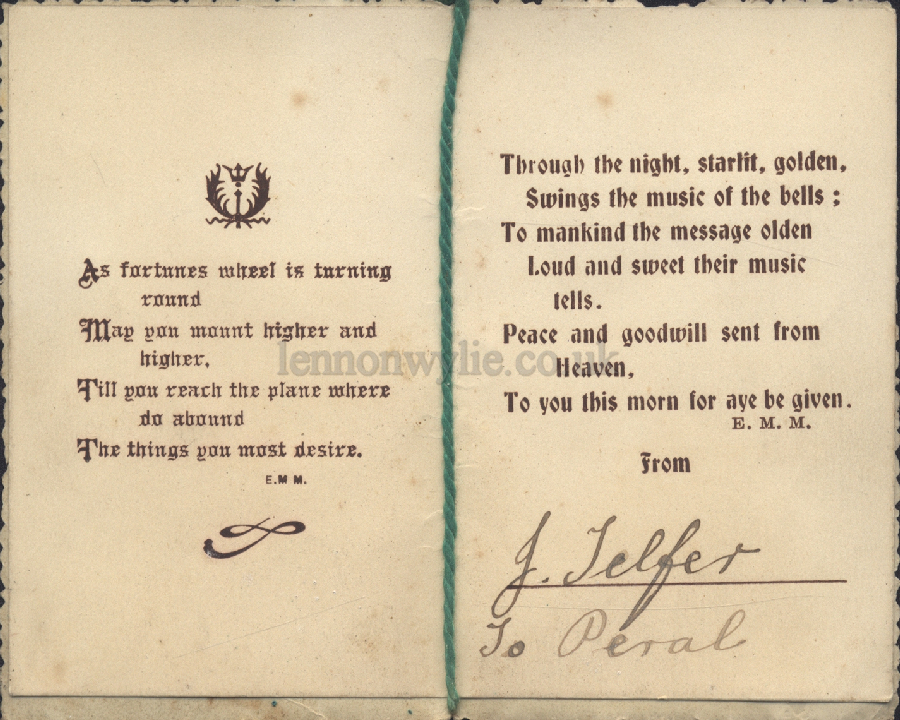 As fortunes wheel is turning
round
May you mount higher and
higher,
Till you reach the plane where
do abound
The things you most desire.
E.M M.
Through the night, starlit, golden,
Swings the music of the bells ;
To mankind the message olden
Loud and sweet their music
tells.
Peace and goodwill sent from
Heaven,
To you this morn for aye be given.
E. M. M.
From
J. Telfer
To Peral
lennonwylie.co.uk